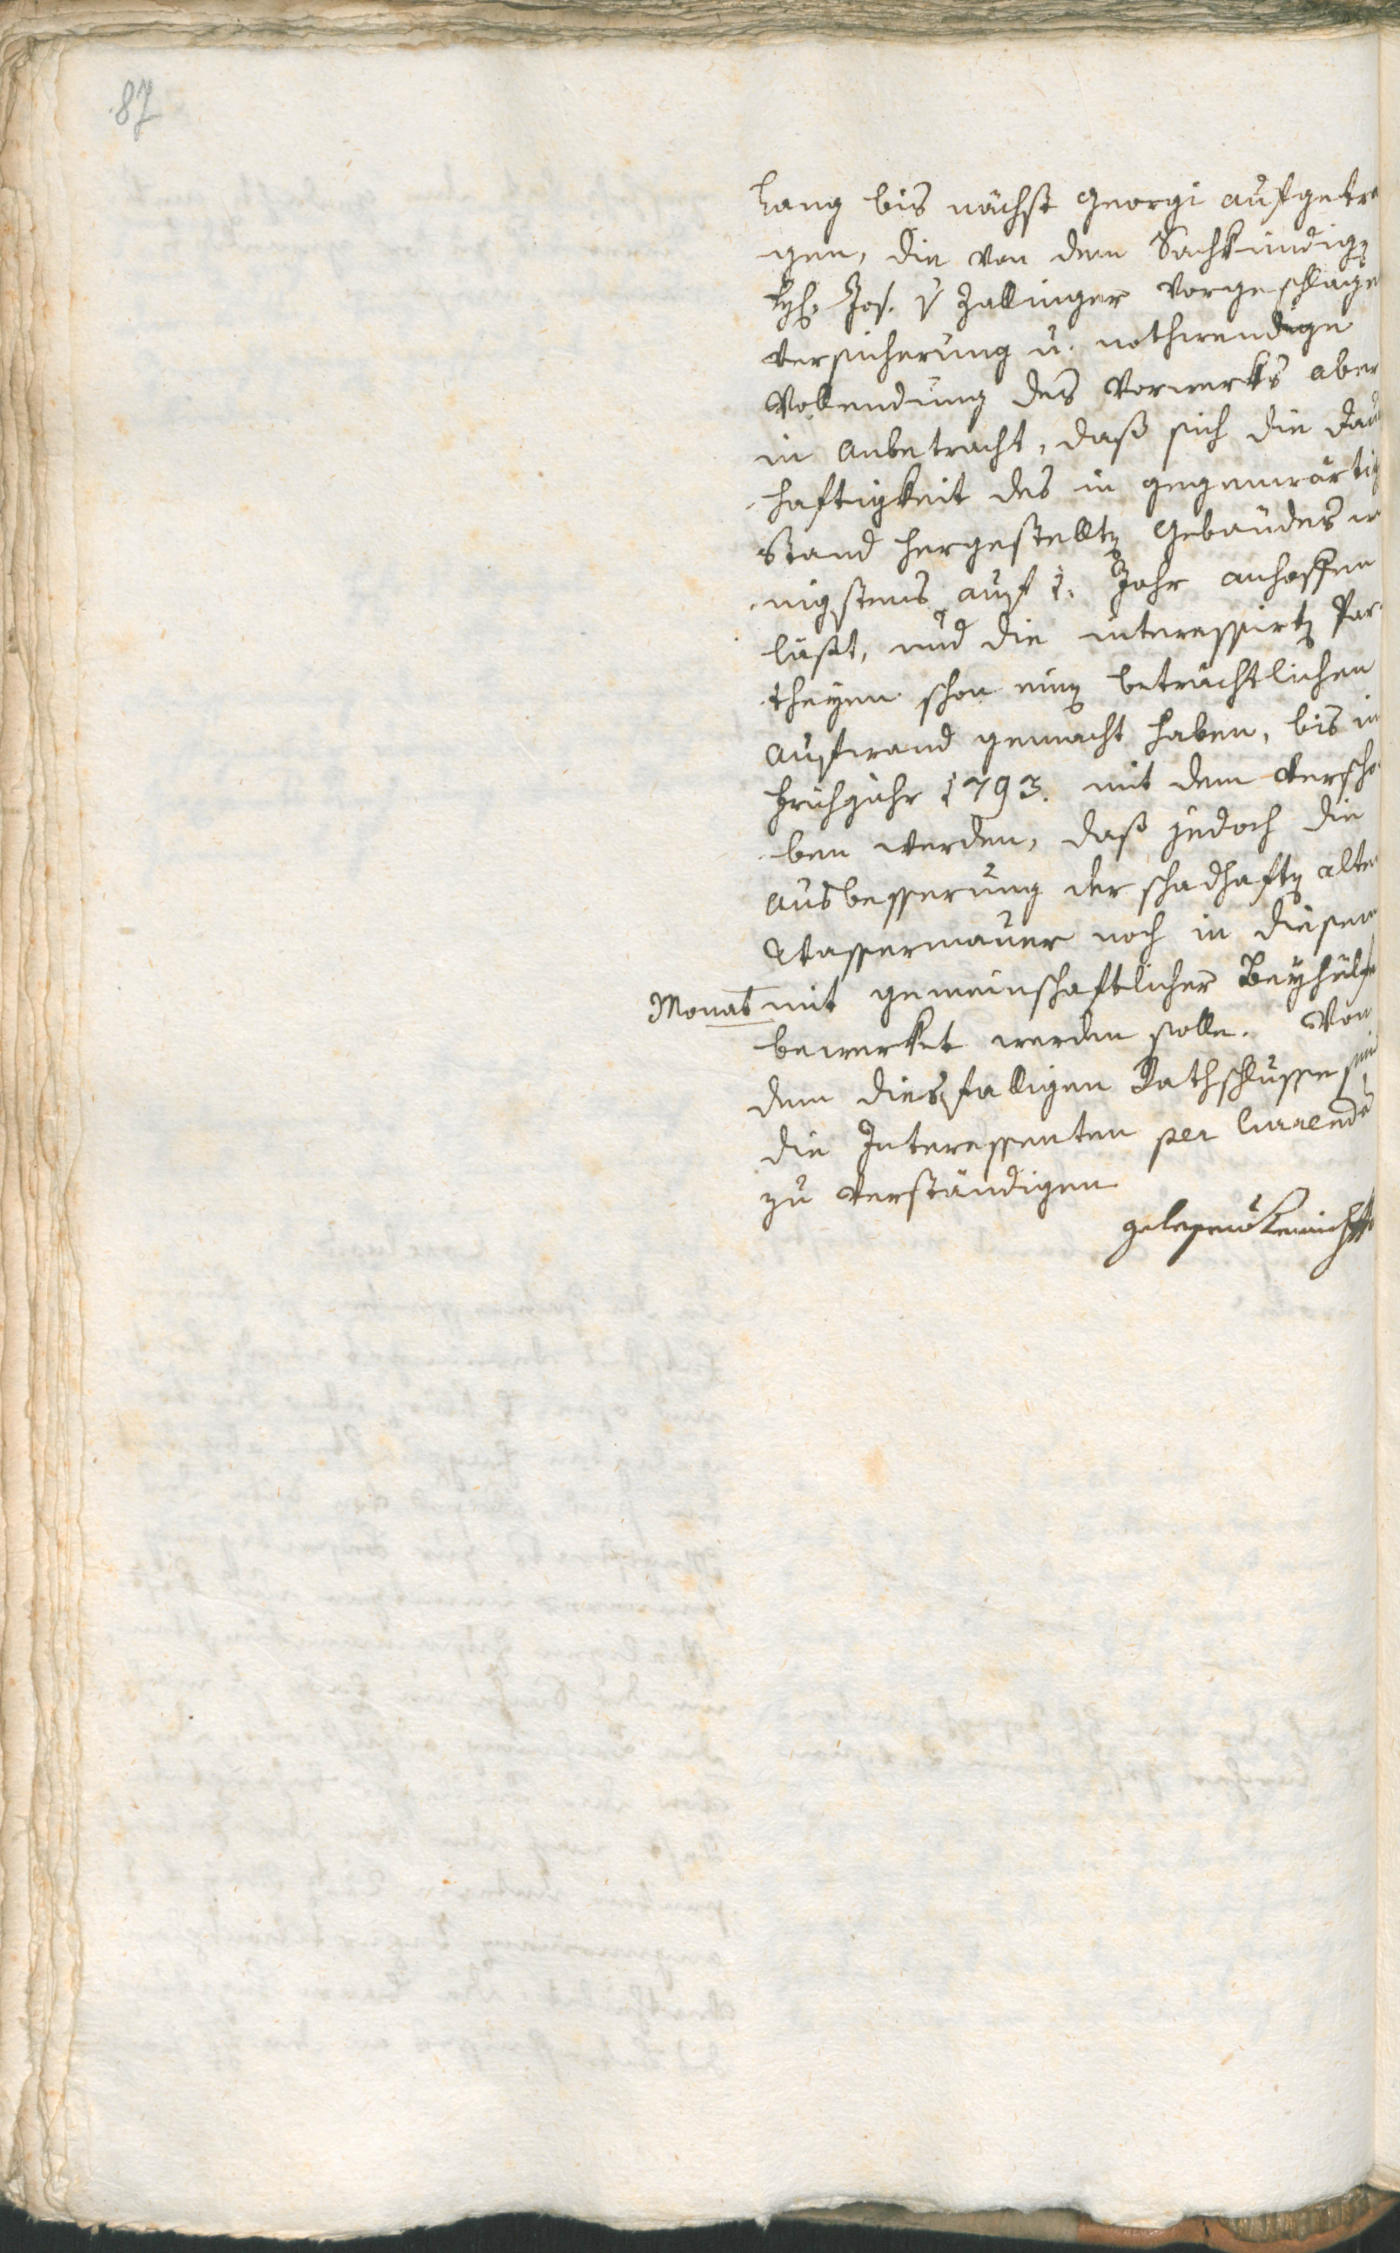 87
lang bis nächst Georgi aufgetra
gen, die von dem Sachkündig
Jos. v Zallinger vorgeschlage
Versicherung u. nothwendige
Vollendung des Vorwerks aber
in Anbetracht, daß sich die Dau
haftigkeit des in gegenwärtig
Stand hergestellten Gebäudes we
nigstens auf 1. Jahr anhoffen
läßt, und die interessirten Par
theyen schon einen beträchtlichen
Aufwand gemacht haben, bis in
Frühjahr 1793. mit dem verscho
ben werden, daß jedoch die
Ausbesserung der schadhaften alten
Wassermauer noch in diesem
Monat mit gemeinschaftlicher Beyhülfe
bewerket werden solle. Von
dem diesfalligen Rathschlusse sind
die Interessenten per Currenda
zu verständigen